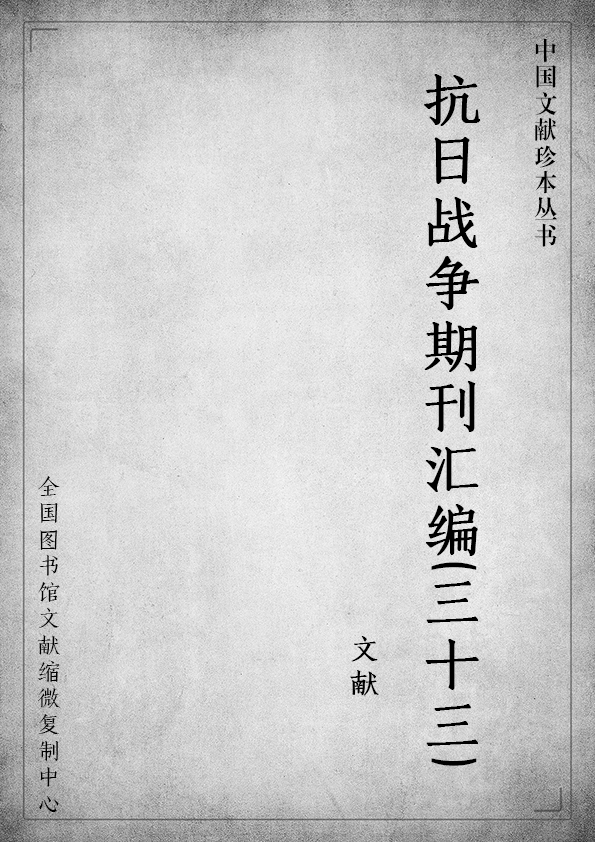 中国文献珍本丛书
抗日战争期刊汇编(三十三)
文献
全国图书馆文献缩微复制中心